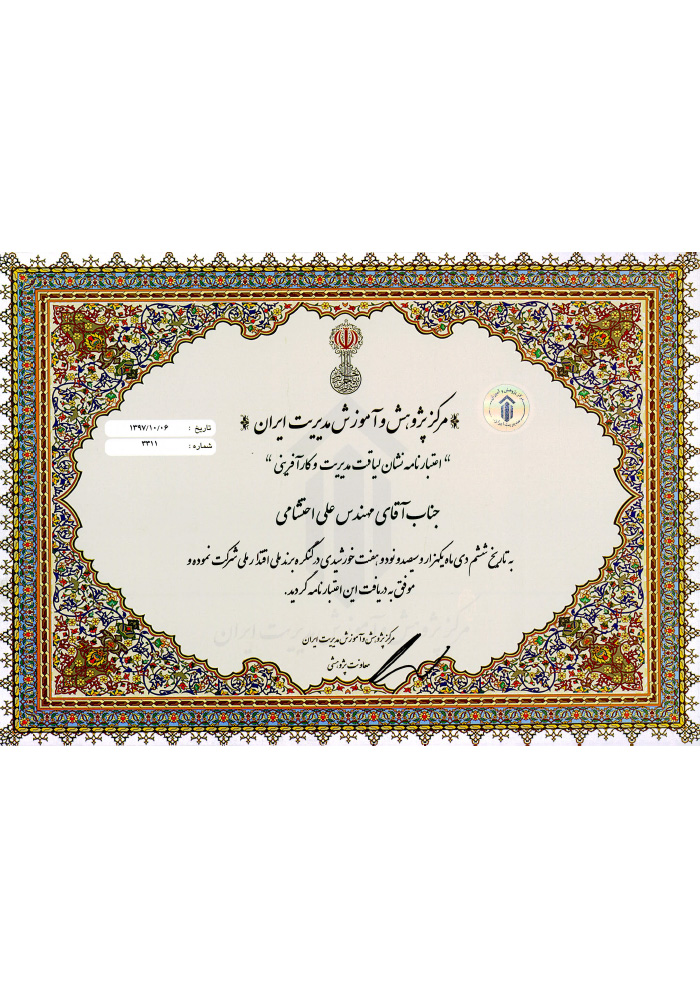 مرکز پژوهش و آموزش مدیریت ایران
تاریخ : ۱۳۹۷/۱۰/۰۶
شماره : ۳۳۱۱
"اعتبارنامه نشان لیاقت مدیریت و کارآفرینی"
جناب آقای مهندس علی احتشامی
به تاریخ ششم دی ماه یکهزار و سیصد و نود و هفت خورشیدی در کنگره برند ملی اقتدار ملی شرکت نموده و
موفق به دریافت این اعتبارنامه گردید.
مرکز پژوهش و آموزش مدیریت ایران
معاونت پژوهشی